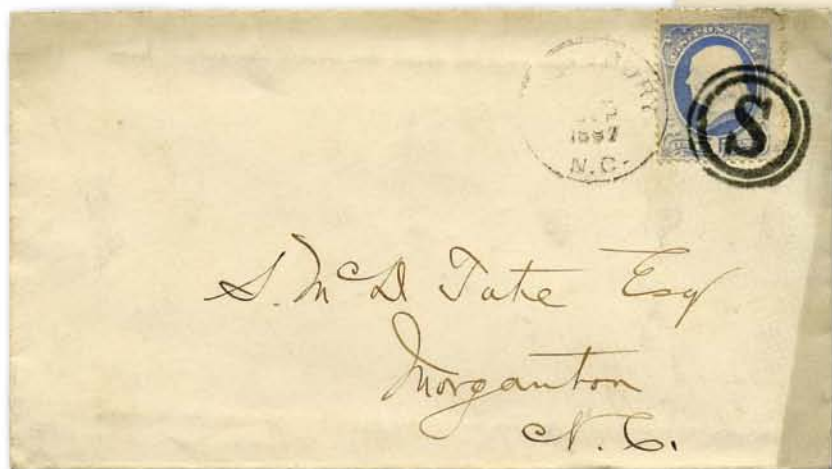 S
N.C.
S. McD Tate Esq
Morganton
N.C.